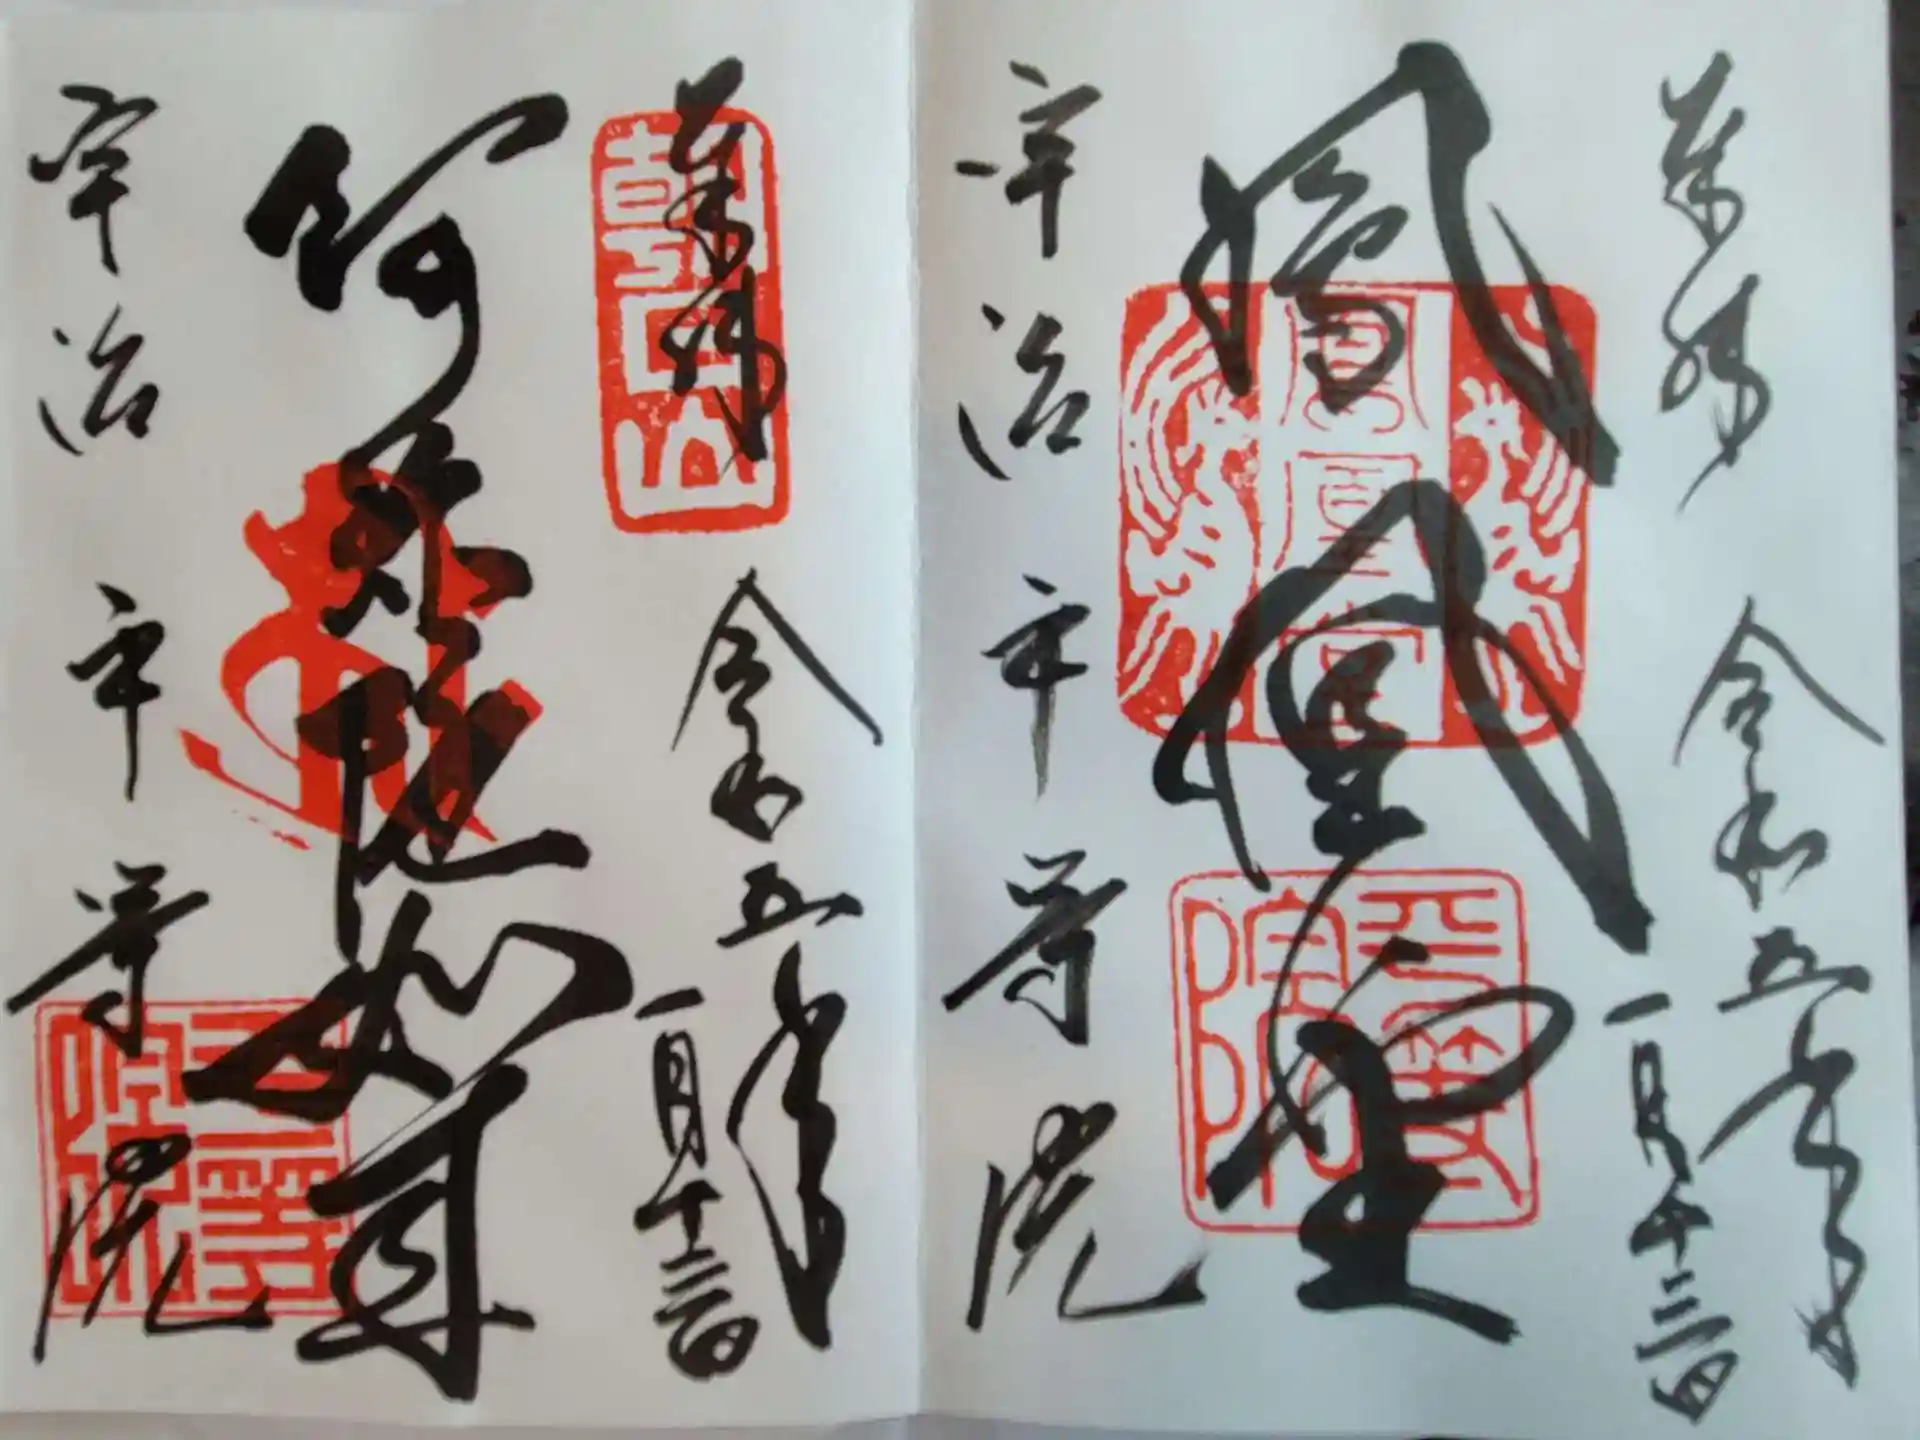 奉拝
令和五年
一月十三日
鳳凰堂
鳳凰堂
平等院
宇治平等院
奉拝
朝日山
令和五年
一月十三日
阿弥陀如来
宇治平等院
平等院